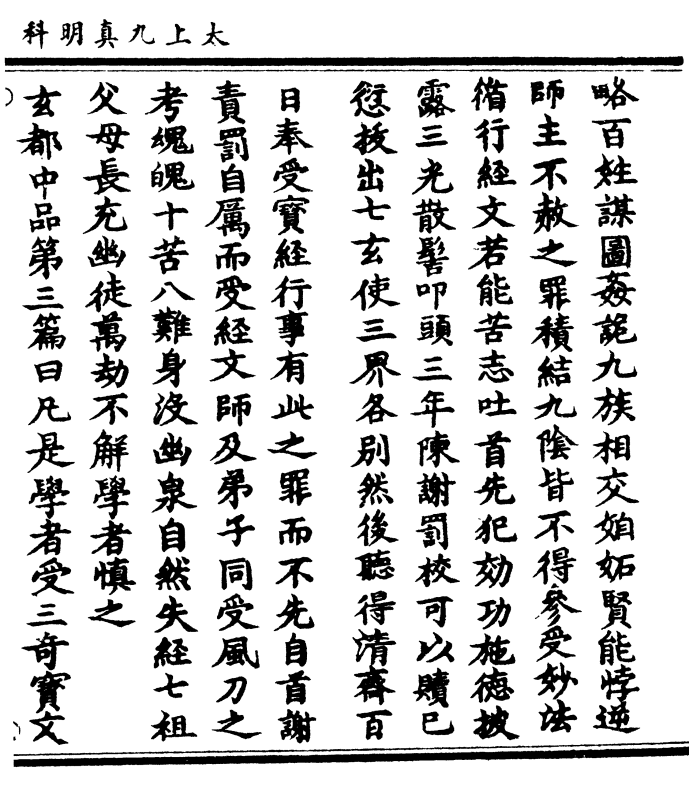 太上九真明科
略百姓謀圖姦詭九族相交妬妬賢能悖逆
師主不赦之罪積結九陰皆不得參受妙法
脩行經文若能苦志吐首先犯効功施德披
露三光散髻叩頭三年陳謝罰校可以贖已
愆拔出七玄使三界各別然後聽得清齋百
日奉受寶經行事有此之罪而不先自首謝
責罰自厲而受經文師及弟子同受風刀之
考魂魄十苦八難身没幽泉自然失經七祖
父母長充幽徒萬劫不解學者慎之
玄都中品第三篇曰凡是學者受三奇寶文